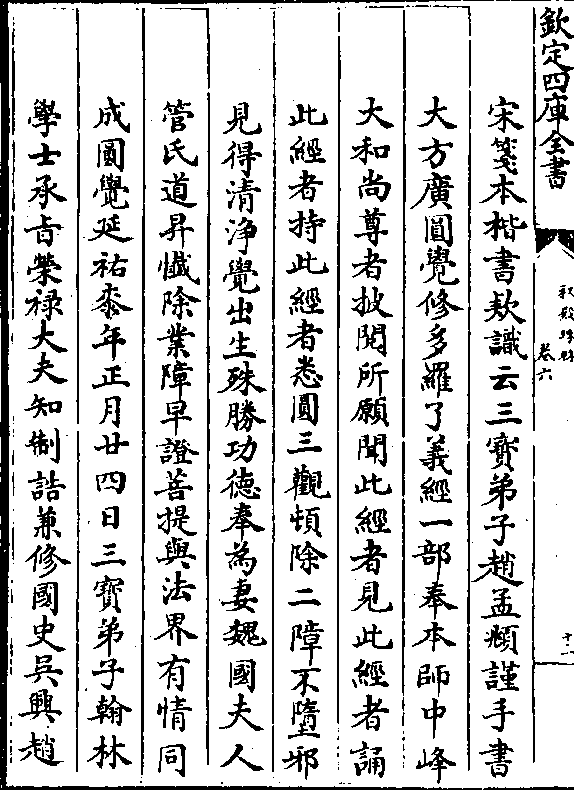 欽定四庫全書
卷六
宋箋本楷書欵識云三寳弟子趙孟頫謹手書
大方廣圓覺修多羅了義經一部奉本師中峰
大和尚尊者披閱所願聞此經者見此經者誦
此經者持此經者悉圓三觀頓除二障不墮邪
見得清淨覺出生殊勝功德奉為妻魏國夫人
管氏道昇懴除業障早證菩提與法界有情同
成圓覺延祐柒年正月廿四日三寳弟子翰林
學士承㫖榮禄大夫知制誥兼修國史吳興趙